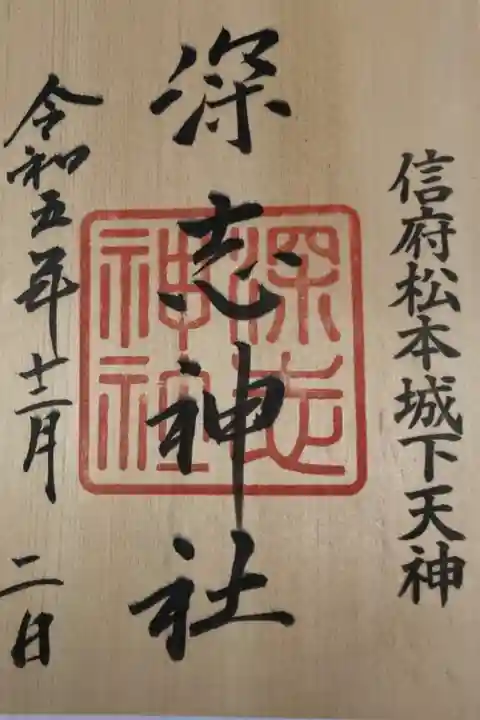 信府松本城下天神
深志神社
深志
神社
令和五年十二月二日